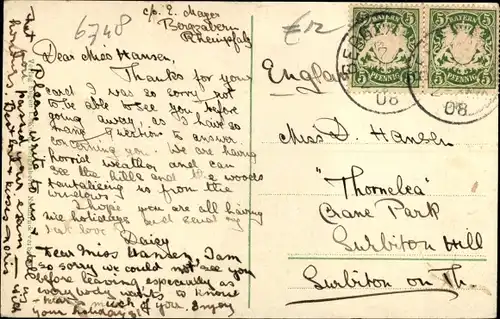 6748
c/o. E. Mayer
Bergzabern
Rheinpfalz
€12
BAYERN
5 5
PFENNIG
BAYERN
5 5
PFENNIG
08
08
Dear Miss Hansen,
Thanks for your
card I was so sorry not
to be able to see you before
going away, as I have so
many questions to answer
concerning you. We are having
horrid weather and can
see the hills and the woods
tantalizing us from the
windows.
I hope you are all having
nice holidays just send my
love
Daisy
Dear Miss Hansen, I am
so sorry we could not see you
before leaving especially as
everybody wants to know
much of you. Enjoy
your holidays!
Please write to us
that you passed your exam with
honours. Best love kisses
England
Miss D. Hansen
"Thornelea"
Crane Park
Surbiton Hill
Surbiton on Th.